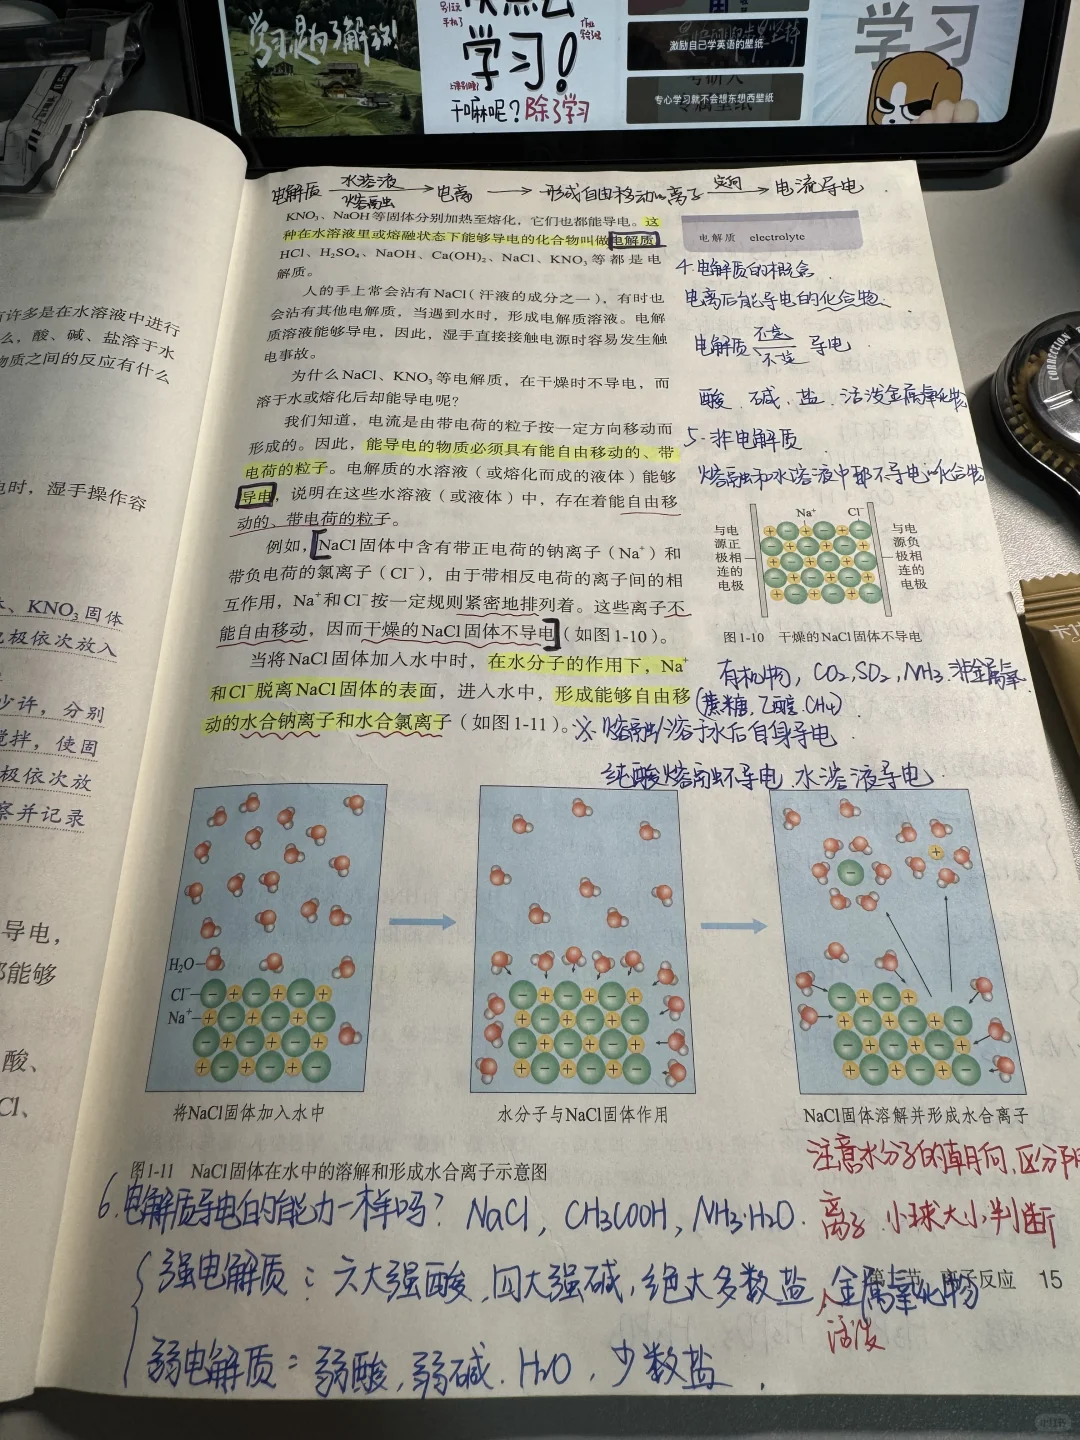 学习是为了解放!
学习!
干嘛呢?除了学习
激励自己学英语的壁纸
专心学习就不会想东想西壁纸
学习
电解质 水溶液 熔融 电离 → 形成自由移动的离子 定向 电流导电
KNO₃、NaOH等固体分别加热至熔化,它们也都能导电。这
种在水溶液里或熔融状态下能够导电的化合物叫做电解质。
HCl、H₂SO₄、NaOH、Ca(OH)₂、NaCl、KNO₃等都是电
解质。
人的手上常会沾有NaCl(汗液的成分之一),有时也
会沾有其他电解质,当遇到水时,形成电解质溶液。电解
质溶液能够导电,因此,湿手直接接触电源时容易发生触
电事故。
为什么NaCl、KNO₃等电解质,在干燥时不导电,而
溶于水或熔化后却能导电呢?
我们知道,电流是由带电荷的粒子按一定方向移动而
形成的。因此,能导电的物质必须具有能自由移动的、带
电荷的粒子。电解质的水溶液(或熔化而成的液体)能够
导电,说明在这些水溶液(或液体)中,存在着能自由移
动的、带电荷的粒子。
例如,NaCl固体中含有带正电荷的钠离子(Na⁺)和
带负电荷的氯离子(Cl⁻),由于带相反电荷的离子间的相
互作用,Na⁺和Cl⁻按一定规则紧密地排列着。这些离子不
能自由移动,因而干燥的NaCl固体不导电(如图1-10)。
当将NaCl固体加入水中时,在水分子的作用下,Na⁺
和Cl⁻脱离NaCl固体的表面,进入水中,形成能够自由移
动的水合钠离子和水合氯离子(如图1-11)。
电解质 electrolyte
4.电解质的概念
电离后能导电的化合物
电解质 不一定 不一定 导电
酸、碱、盐、活泼金属氧化物
5.非电解质
熔融和水溶液中都不导电的化合物
Na⁺ Cl⁻
与电
源正
极相
连的
电极
与电
源负
极相
连的
电极
图1-10 干燥的NaCl固体不导电
有机物, CO₂, SO₂, NH₃. 非金属氧
(蔗糖, 乙醇, CH₄)
※ 熔融/溶于水后自身导电
纯酸熔融不导电、水溶液导电
有许多是在水溶液中进行
么,酸、碱、盐溶于水
物质之间的反应有什么
电时,湿手操作容
体、KNO₃固体
电极依次放入
少许,分别
搅拌,使固
极依次放
察并记录
导电,
都能够
酸、
Cl、
H₂O
Cl⁻
Na⁺
将NaCl固体加入水中
水分子与NaCl固体作用
NaCl固体溶解并形成水合离子
图1-11 NaCl固体在水中的溶解和形成水合离子示意图
注意水分子的朝向,区分阴
离子 小球大小判断
6.电解质导电的能力一样吗? NaCl, CH₃COOH, NH₃·H₂O.
强电解质: 六大强酸, 四大强碱, 绝大多数盐, 金属氧化物
活泼
第二节 离子反应 15
弱电解质: 弱酸, 弱碱. H₂O, 少数盐.
CORRECTION
小红书